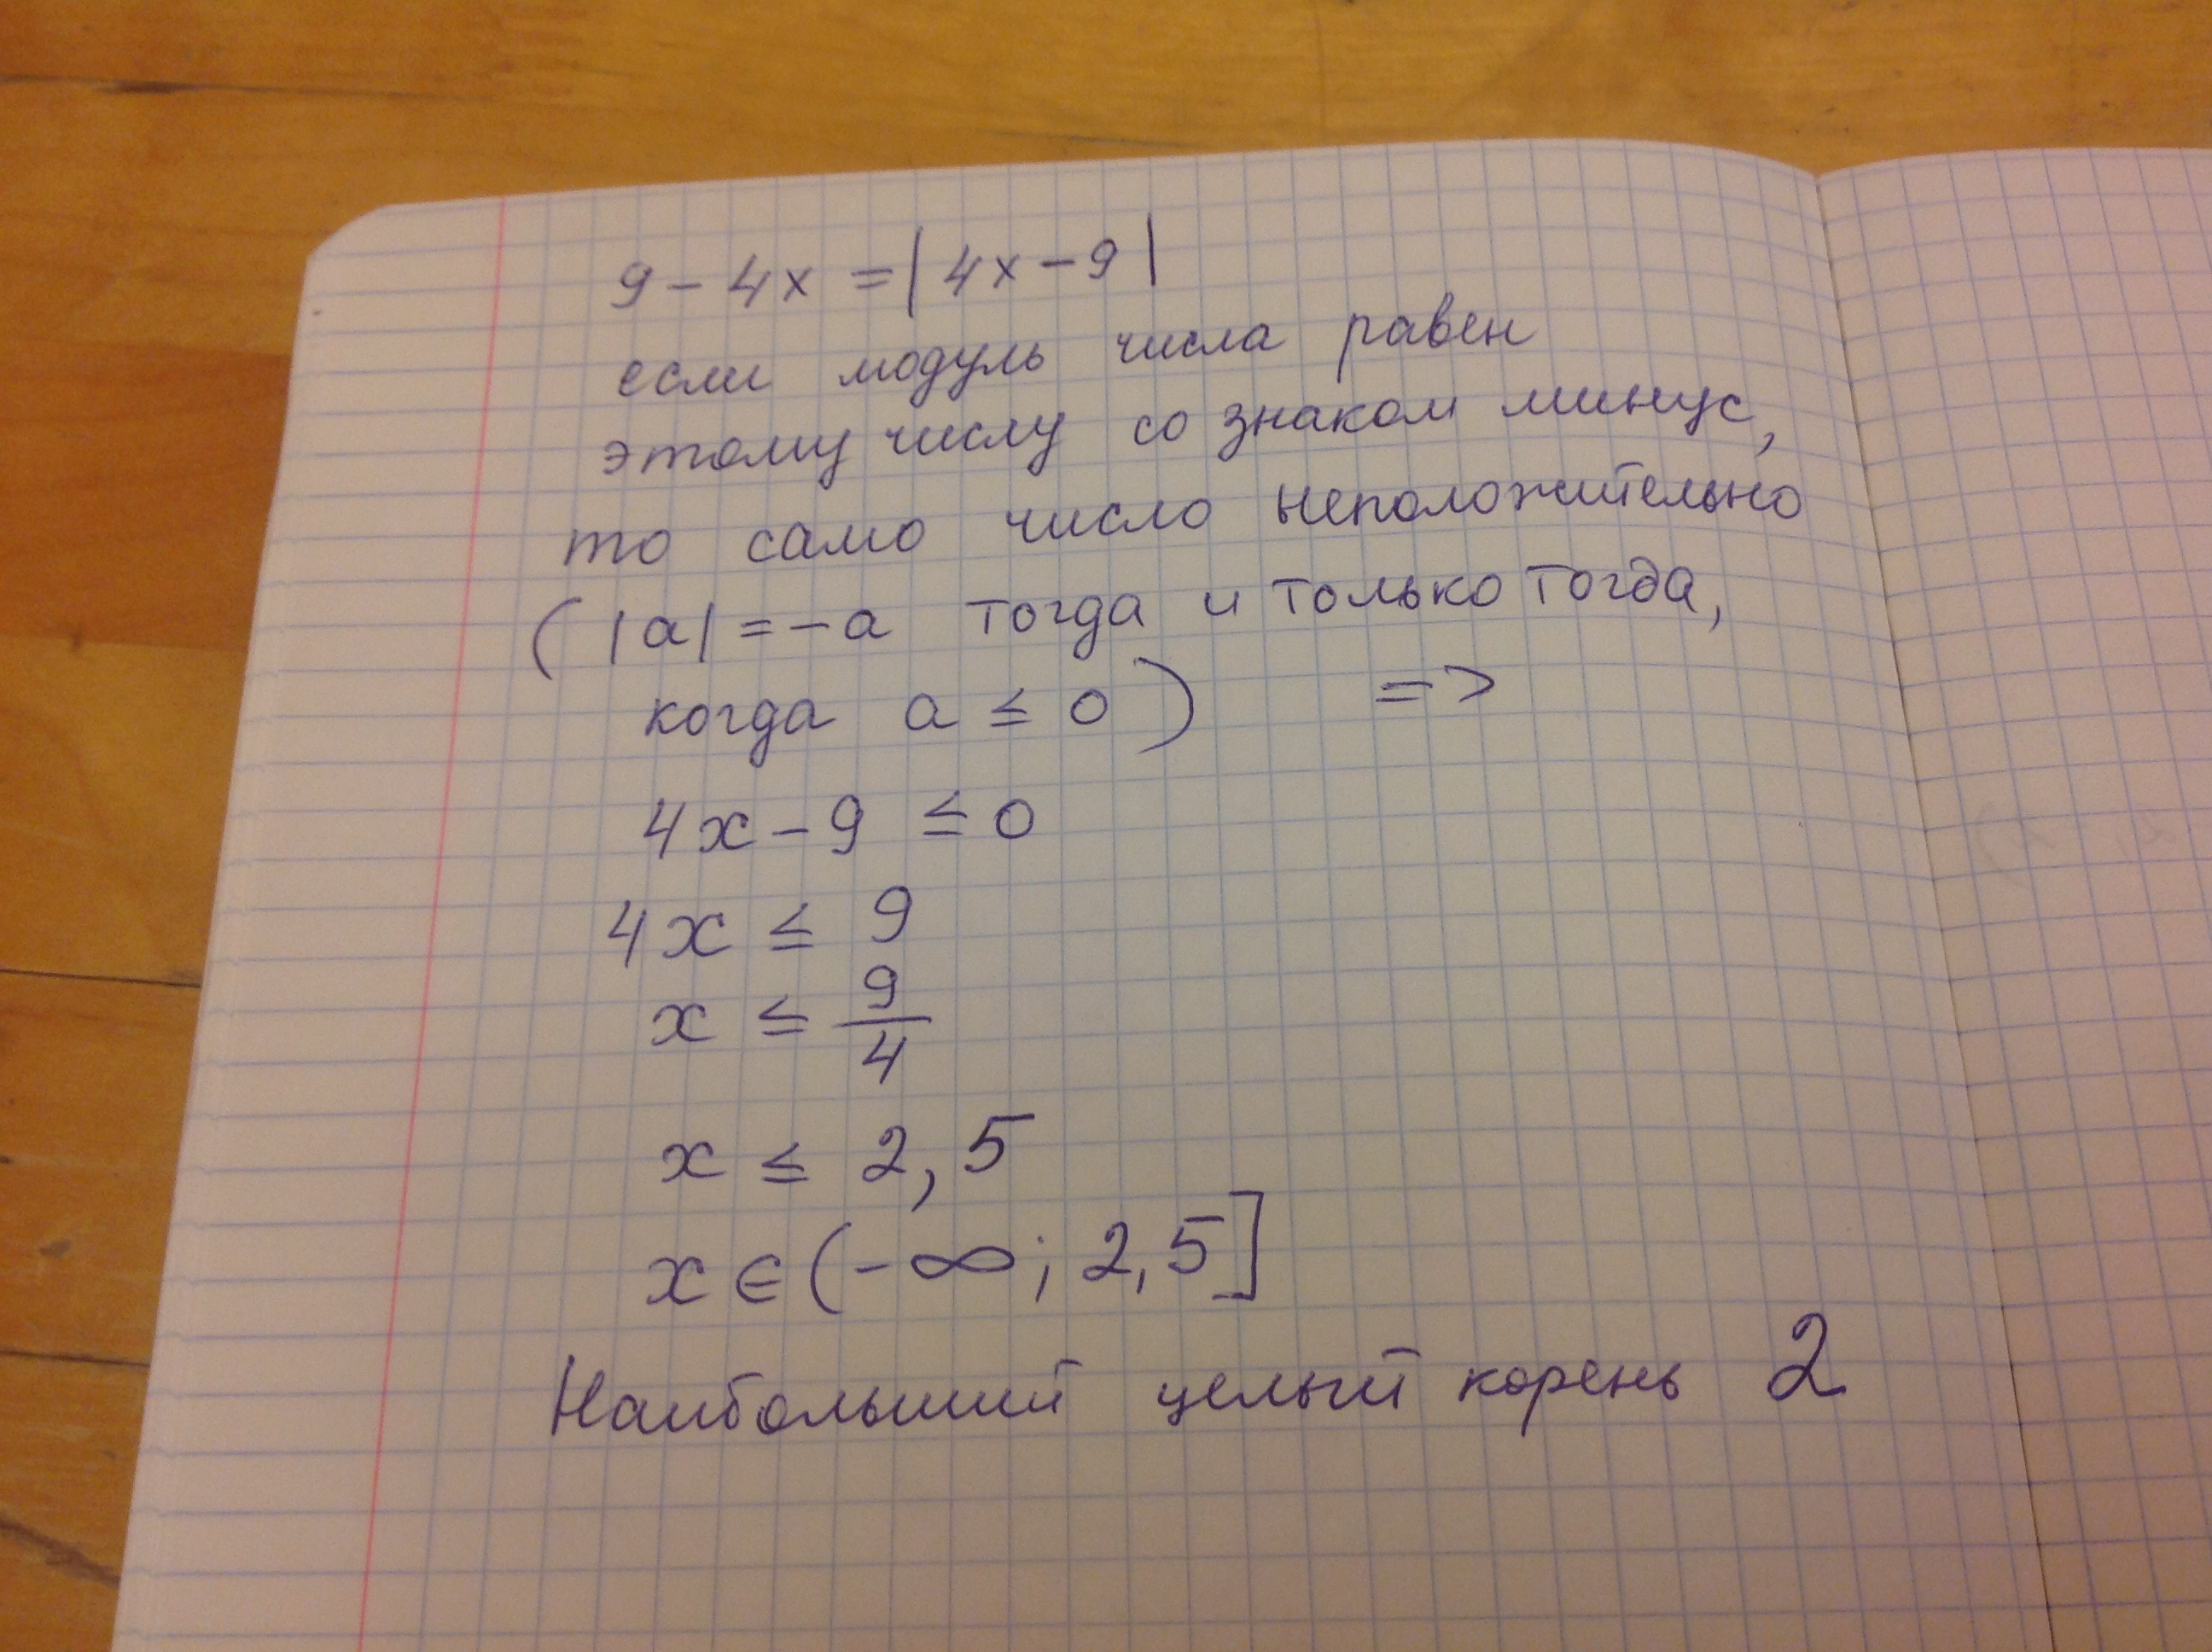 9 - 4x = |4x - 9|
если модуль числа равен
этому числу со знаком минус,
то само число неположительно
(|a| = -a тогда и только тогда,
когда a ≤ 0) =>
4x - 9 ≤ 0
4x ≤ 9
x ≤ 9/4
x ≤ 2,5
x ∈ (-∞; 2,5]
Наибольший целый корень 2